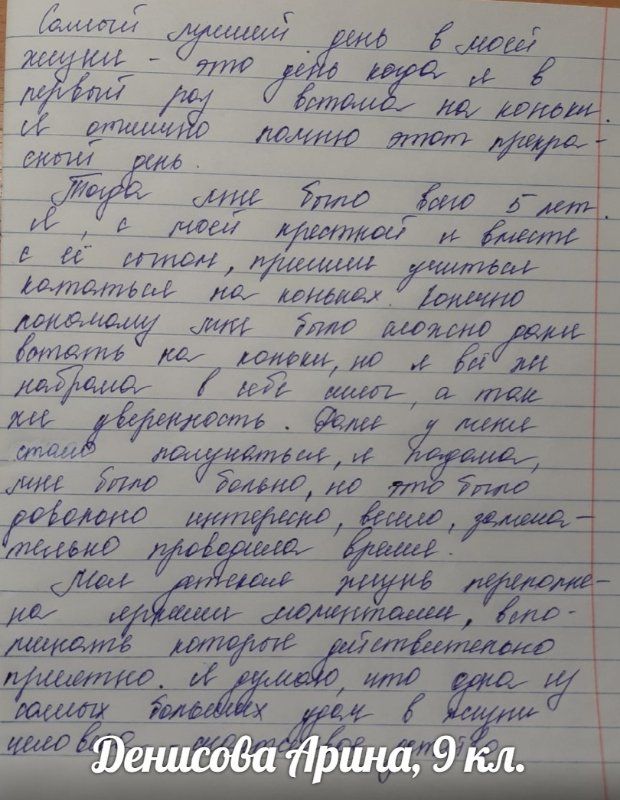 Самый лучший день в моей
жизни – это день когда я в
первый раз встала на коньки.
Я отлично помню этот прекра-
сный день.
Тогда мне было всего 5 лет.
Я, с моей крестной и вместе
с её сыном, пришли учиться
кататься на коньках. Конечно
поначалу мне было сложно даже
встать на коньки, но я всё же
набрала в себе силы, а так
же уверенность. Далее у меня
стало получаться, я падала,
мне было больно, но это было
довольно интересно, весело, замеча-
тельно проводила время.
Моя детская жизнь переполне-
на яркими моментами, вспо-
минать которые действительно
приятно. Я думаю, что одна из
самых больших удач в жизни
человека счастливое детство
Денисова Арина, 9 кл.